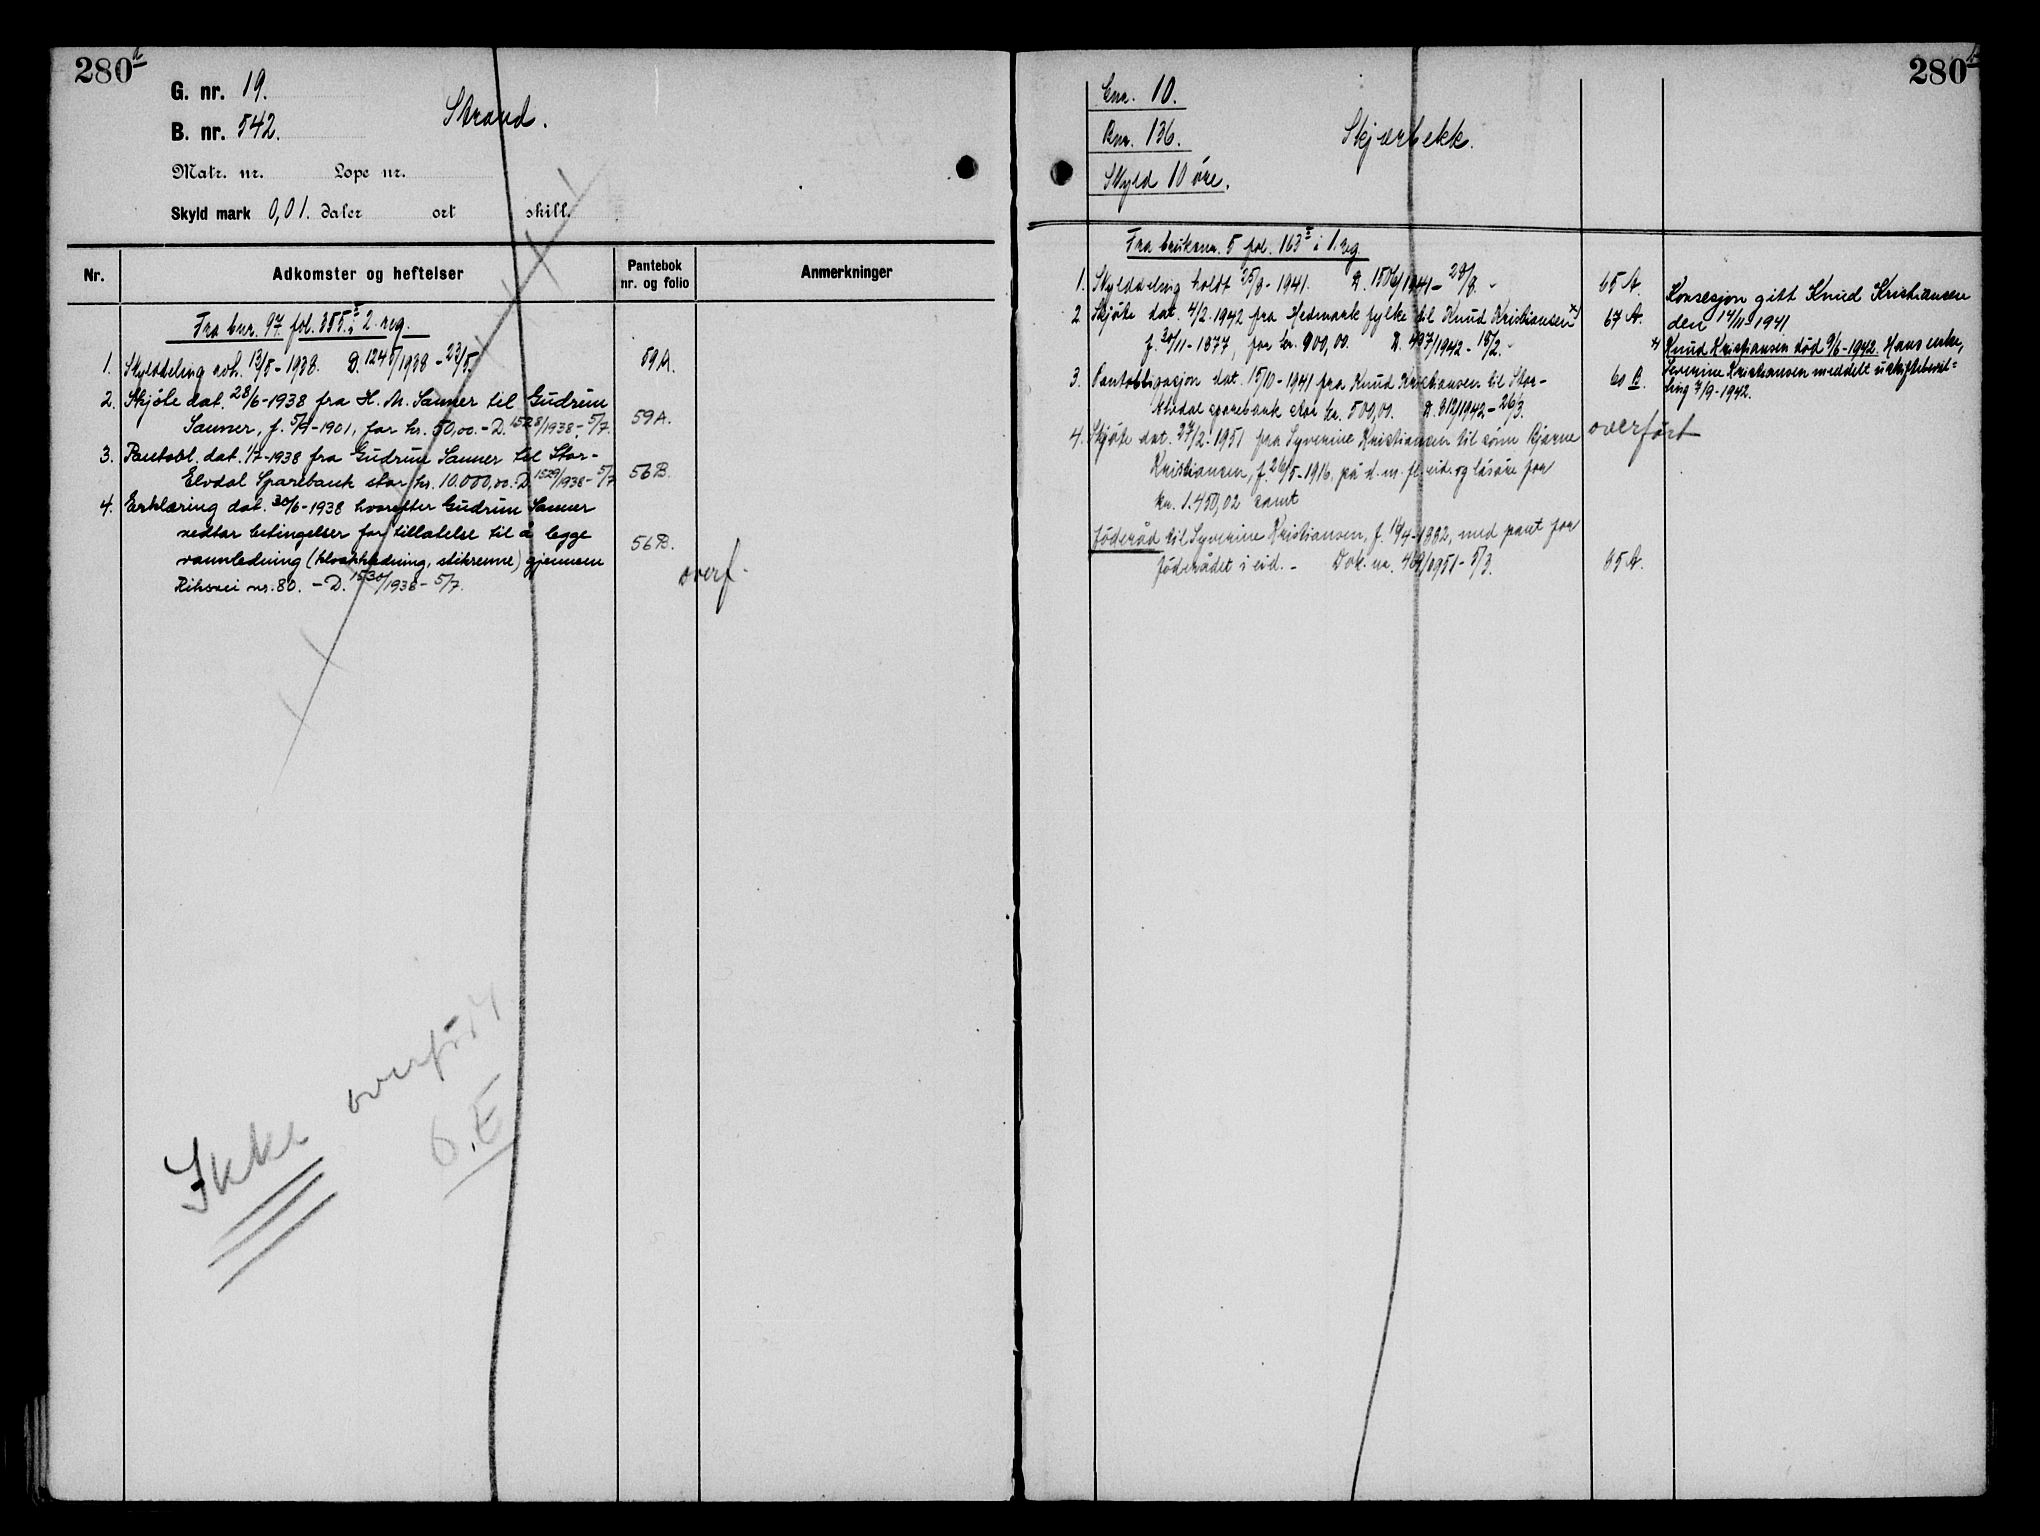 280a
G. nr. 19.
B. nr. 542.
Strand.
Matr. nr. Lope nr.
Skyld mark 0,01. daler ort skill.
Nr. Adkomster og heftelser Pantebok nr. og folio Anmerkninger
Fra bnr. 97 fol. 385 i 2. reg.
1. Skylddeling avh. 13/5-1938. D. 1245/1938 - 23/5. 59A.
2. Skjöte dat. 28/6-1938 fra H. M. Sanner til Gudrun
Sanner, f. 5/9-1901, for kr. 50,00. - D. 1528/1938 - 5/7. 59A.
3. Pantobl. dat. 1/7-1938 fra Gudrun Sanner til Stor-
Elvdal Sparebank stor kr. 10.000,00. D. 1529/1938 - 5/7 56B.
4. Erklæring dat. 30/6-1938 hvorefter Gudrun Sanner
vedtar betingelser for tillatelse til å legge
vannledning (kloakkledning, stikrenne) gjennem 56B.
Riksvei nr. 80. - D. 1530/1938 - 5/7. overf.
Ikke overført
O.E
280b
Gnr. 10.
Bnr. 136.
Skjærbekk.
Skyld 10 øre.
Fra bruksnr. 5 fol. 163 i 1. reg
1. Skylddeling holdt 25/8-1941. D. 1506/1941 - 28/8. 65 A.
2 Skjöte dat. 4/2-1942 fra Hedmark fylke til Knud Kristiansen x) 67 A.
f. 30/11-1877, for kr. 900,00. D. 497/1942 - 18/2.
3. Pantobligasjon dat. 15/10-1941 fra Knud Kristiansen til Stor- 60 B.
Elvdal sparebank stor kr. 500,00. D. 812/1942 - 26/3.
4. Skjöte dat. 27/2-1951 fra Syverine Kristiansen til sönn Bjarne overført
Kristiansen, f. 26/5-1916, på d. m. fl. eid. og lösöre for
kr. 1.450,02 samt
föderåd til Syverine Kristiansen, f. 16/4-1882, med pant for
föderådet i eid. - Dok. nr. 469/1951 - 5/3. 85 A.
Konsesjon gitt Knud Kristiansen
den 14/11 1941
x) Knud Kristiansen död 9/6-1942. Hans enke,
Severine Kristiansen meddelt uskiftebevil=
ling 7/9-1942.